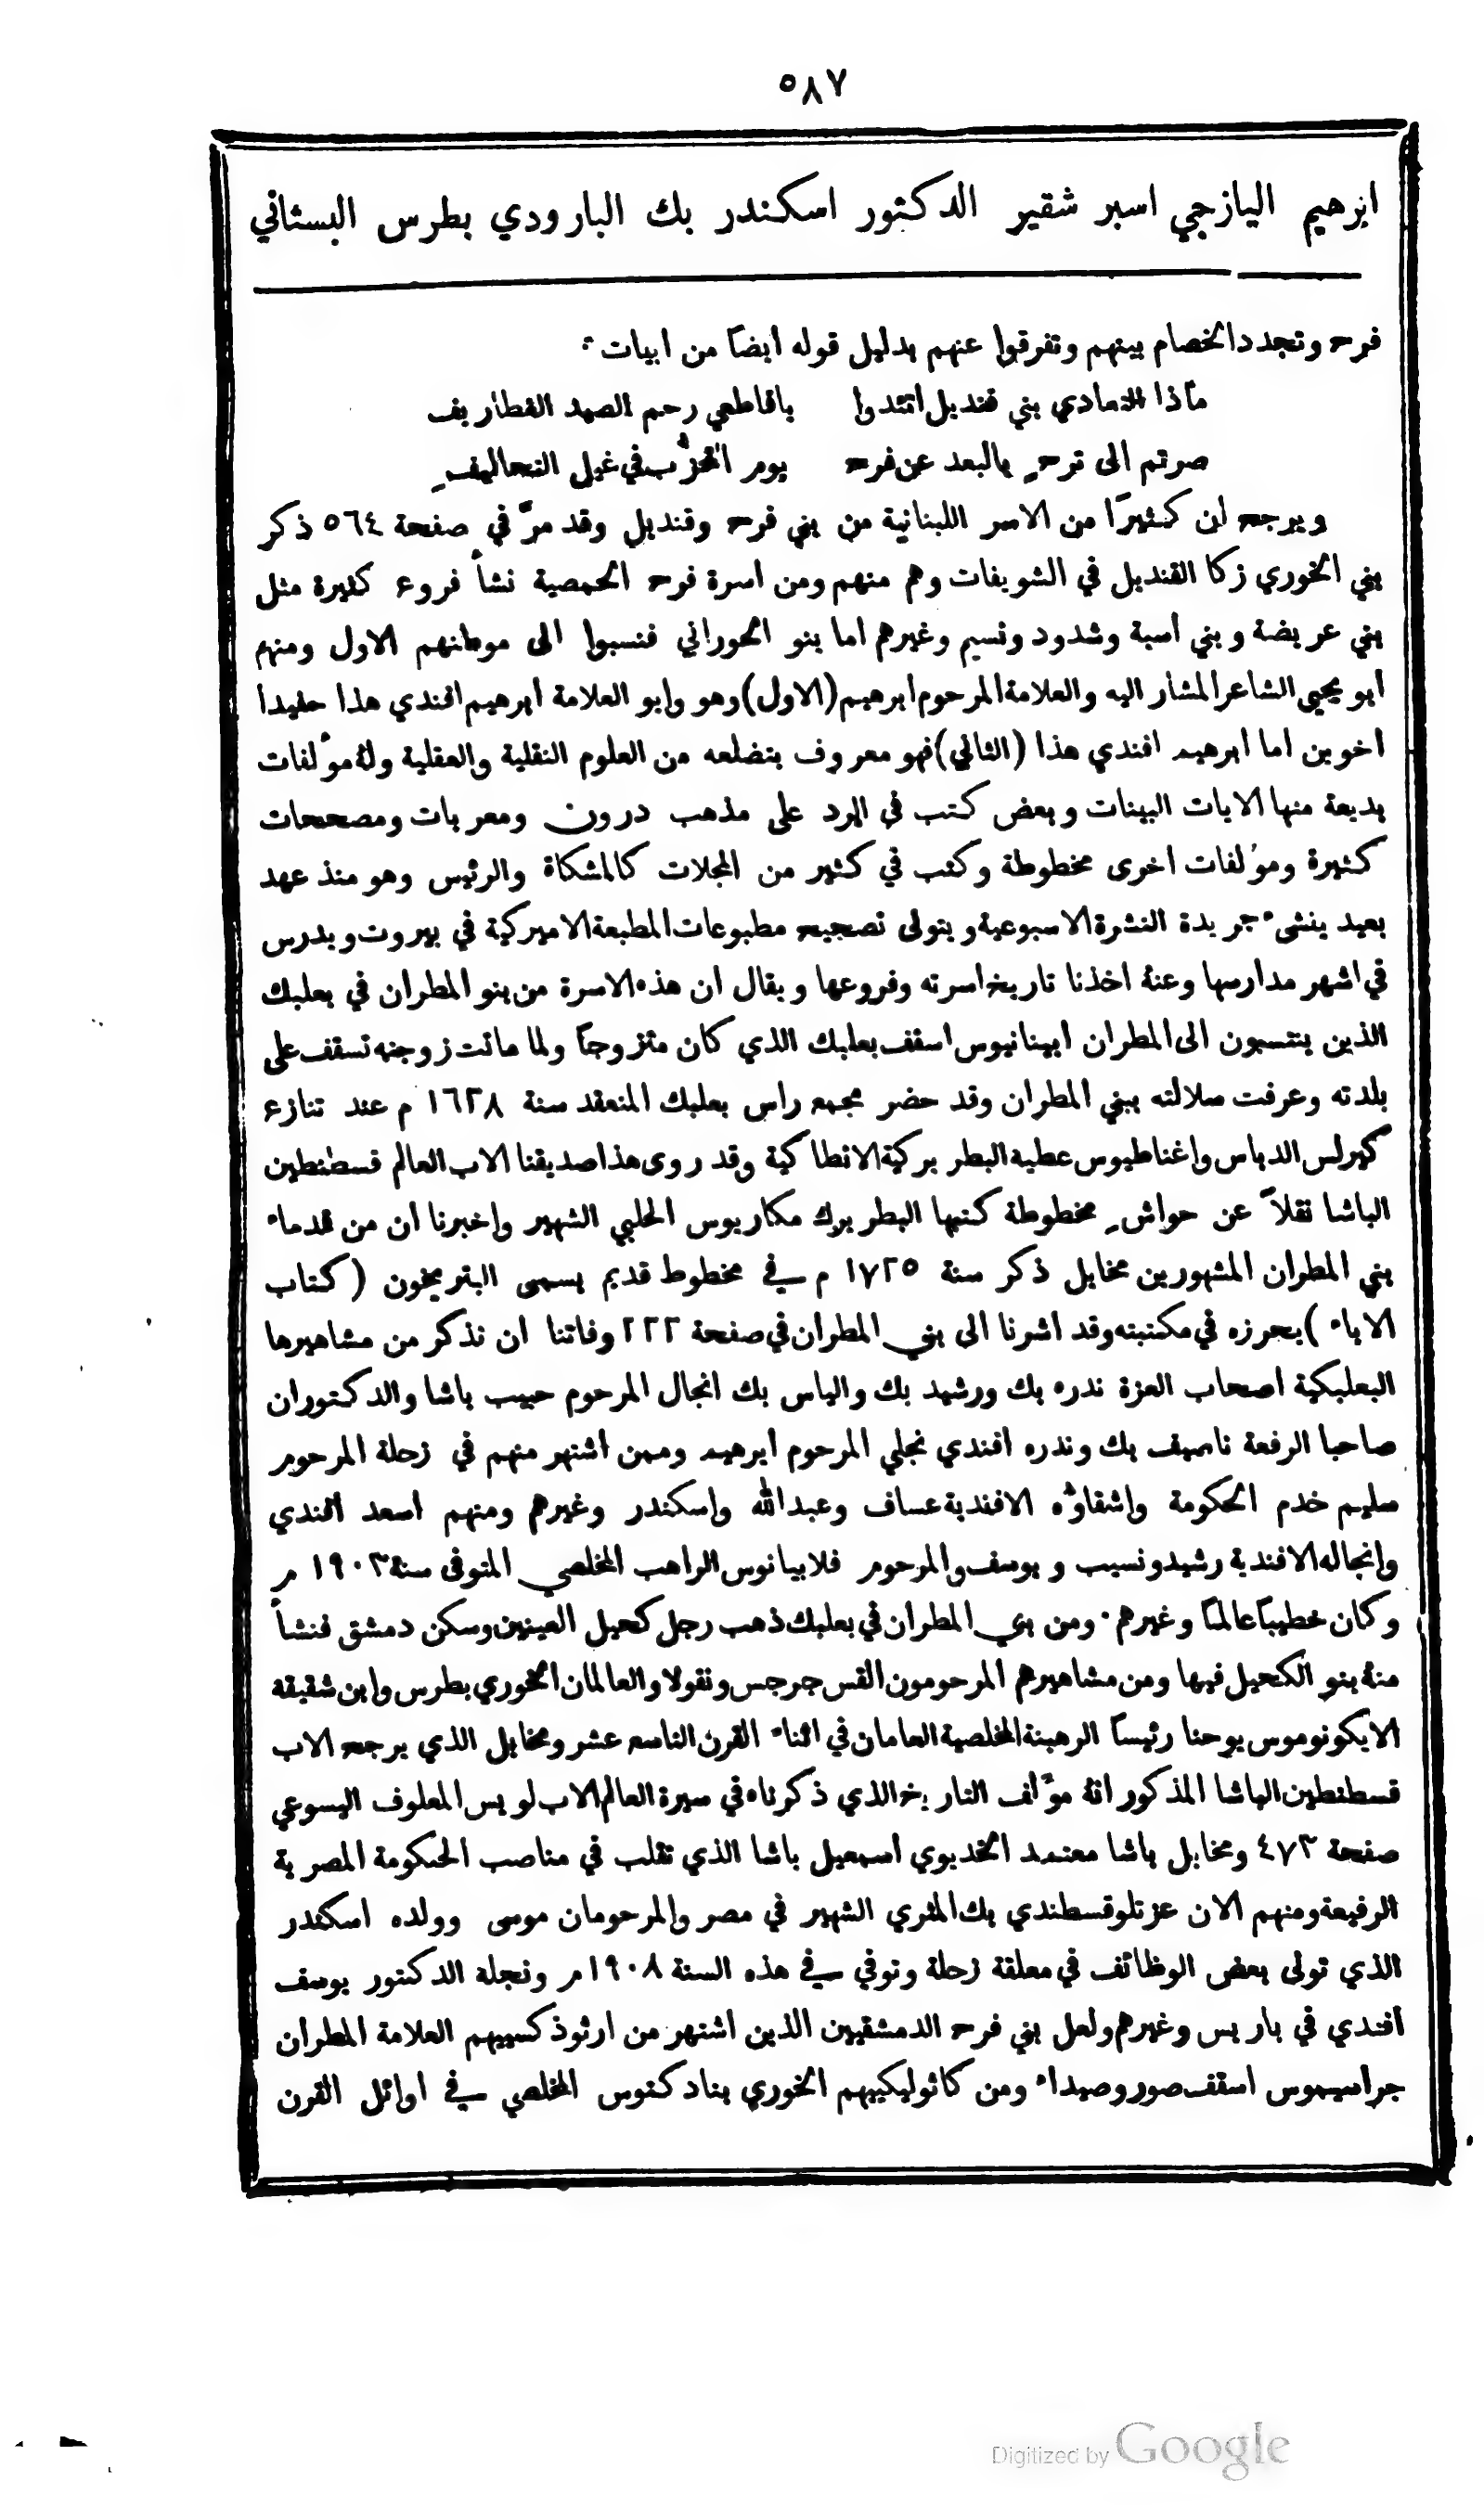 ٥٨٧
ابرهيم اليازجي اسبر شقير الدكتور اسكندر بك البارودي بطرس البستاني
فرح وتجدد الخصام بينهم وتفرقوا عنهم بدليل قوله ايضاً من ابيات:
ماذا التمادي بني قنديل اتئدوا ياقاطعي رحم الصيد الغطاريف
صرتم الى ترحٍ بالبعد عن فرح يوم التحزُّب في غيل التحاليفِ
ويرجح ان كثيراً من الاسر اللبنانية من بني فرح وقنديل وقد مرَّ في صفحة ٥٦٤ ذكر
بني الخوري زكا القنديل في الشويفات وهم منهم ومن اسرة فرح الحمصية نشأ فروع كثيرة مثل
بني عريضة وبني اسبة وشدود ونسيم وغيرهم اما بنو الحوراني فنسبوا الى موطنهم الاول ومنهم
ابو يحيى الشاعر المشار اليه والعلامة المرحوم ابرهيم (الاول) وهو وابو العلامة ابرهيم افندي هذا حفيدا
اخوين اما ابرهيم افندي هذا (الثاني) فهو معروف بتضلعه من العلوم النقلية والعقلية ولهُ موَّلفات
بديعة منها الايات البينات وبعض كتب في الرد على مذهب درون ومعربات ومصححات
كثيرة وموُلفات اخرى مخطوطة وكتب في كثير من المجلات كالمشكاة والرئيس وهو منذ عهد
بعيد ينشىء جريدة النشرة الاسبوعية ويتولى تصحيح مطبوعات المطبعة الاميركية في بيروت ويدرس
في اشهر مدارسها وعنهُ اخذنا تاريخ اسرته وفروعها ويقال ان هذه الاسرة من بنو المطران في بعلبك
الذين ينتسبون الى المطران ابيفانيوس اسقف بعلبك الذي كان متزوجاً ولما ماتت زوجته تسقف على
بلدته وعرفت سلالته ببني المطران وقد حضر مجمع راس بعلبك المنعقد سنة ١٦٢٨ م عند تنازع
كيرلس الدباس واغناطيوس عطيه البطريركية الانطاكية وقد روى هذا صديقنا الاب العالم قسطنطين
الباشا نقلاً عن حواشٍ مخطوطة كتبها البطريرك مكاريوس الحلبي الشهير واخبرنا ان من قدماء
بني المطران المشهورين مخايل ذكر سنة ١٧٢٥ م في مخطوط قديم يسمى البتريخون (كتاب
الاباء) يحرزه في مكتبته وقد اشرنا الى بني المطران في صفحة ٢٢٢ وفاتنا ان نذكر من مشاهيرها
البعلبكية اصحاب العزة ندره بك ورشيد بك والياس بك انجال المرحوم حبيب باشا والدكتوران
صاحبا الرفعة ناصيف بك وندره افندي نجلي المرحوم ابرهيم وممن اشتهر منهم في زحلة المرحوم
سليم خدم الحكومة واشقاؤه الافندية عساف وعبدالله واسكندر وغيرهم ومنهم اسعد افندي
وانجاله الافندية رشيد ونسيب ويوسف والمرحوم فلابيانوس الراهب المخلصي المتوفى سنة ١٩٠٣ م
وكان خطيباً عالماً وغيرهم. ومن بني المطران في بعلبك ذهب رجل كحيل العينين وسكن دمشق فنشأ
منهُ بنو الكحيل فيها ومن مشاهيرهم المرحومون القس جرجس ونقولا والعالمان الخوري بطرس وابن شقيقه
الايكونوموس يوحنا رئيسا الرهبنة المخلصية العامان في اثناء القرن التاسع عشر ومخايل الذي يرجح الاب
قسطنطين الباشا المذكور انهُ موَّلف التاريخ الذي ذكرناه في سيرة العالم الاب لويس المعلوف اليسوعي
صفحة ٤٧٣ ومخايل باشا معتمد الخديوي اسمعيل باشا الذي تقلب في مناصب الحكومة المصرية
الرفيعة ومنهم الان عزتلو قسطندي بك المثري الشهير في مصر والمرحومان موسى وولده اسكندر
الذي تولى بعض الوظائف في معلقة زحلة وتوفي في هذه السنة ١٩٠٨ م ونجلة الدكتور يوسف
افندي في باريس وغيرهم ولعل بني فرح الدمشقيين الذين اشتهر من ارثوذكسييهم العلامة المطران
جراسيموس اسقف صور وصيداء ومن كاثوليكييهم الخوري بنادكتوس المخلصي في اوائل القرن
Digitized by Google